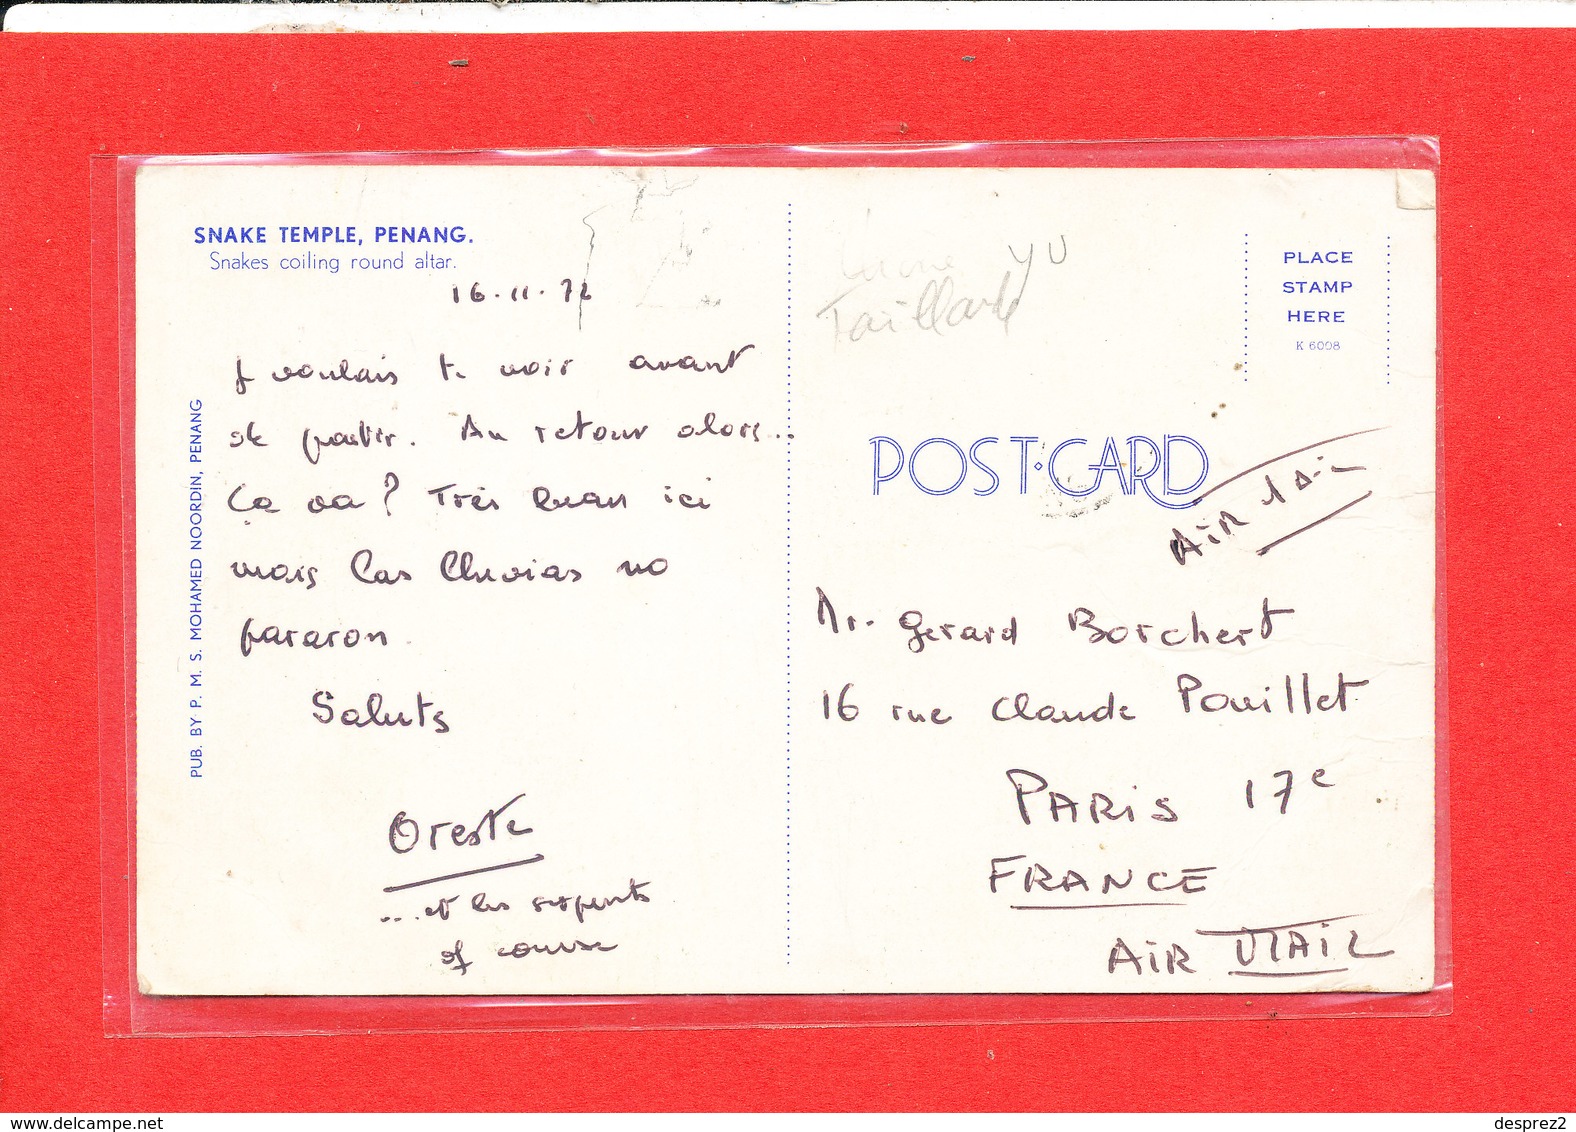 SNAKE TEMPLE, PENANG.
Snakes coiling round altar.
16.11.72
Je voulais te voir avant
de partir. Au retour alors...
Ça va? Très ici
mais las lluvias no
pararon
Saluts
Oreste
...et les serpents
of course
PUB. BY P. M. S. MOHAMED NOORDIN, PENANG
YU
Taillard
PLACE
STAMP
HERE
K 6008
POST·CARD
AIR MAIL
Mr. Gerard Borchert
16 rue Claude Pouillet
PARIS 17e
FRANCE
AIR MAIL
desprez2